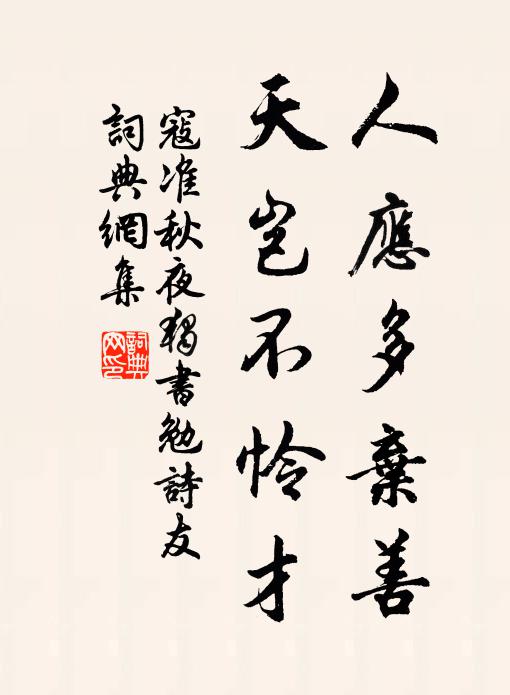 人應多棄善
天豈不憐才
寇准秋夜獨書勉詩友
詞典網集
詞典
网印